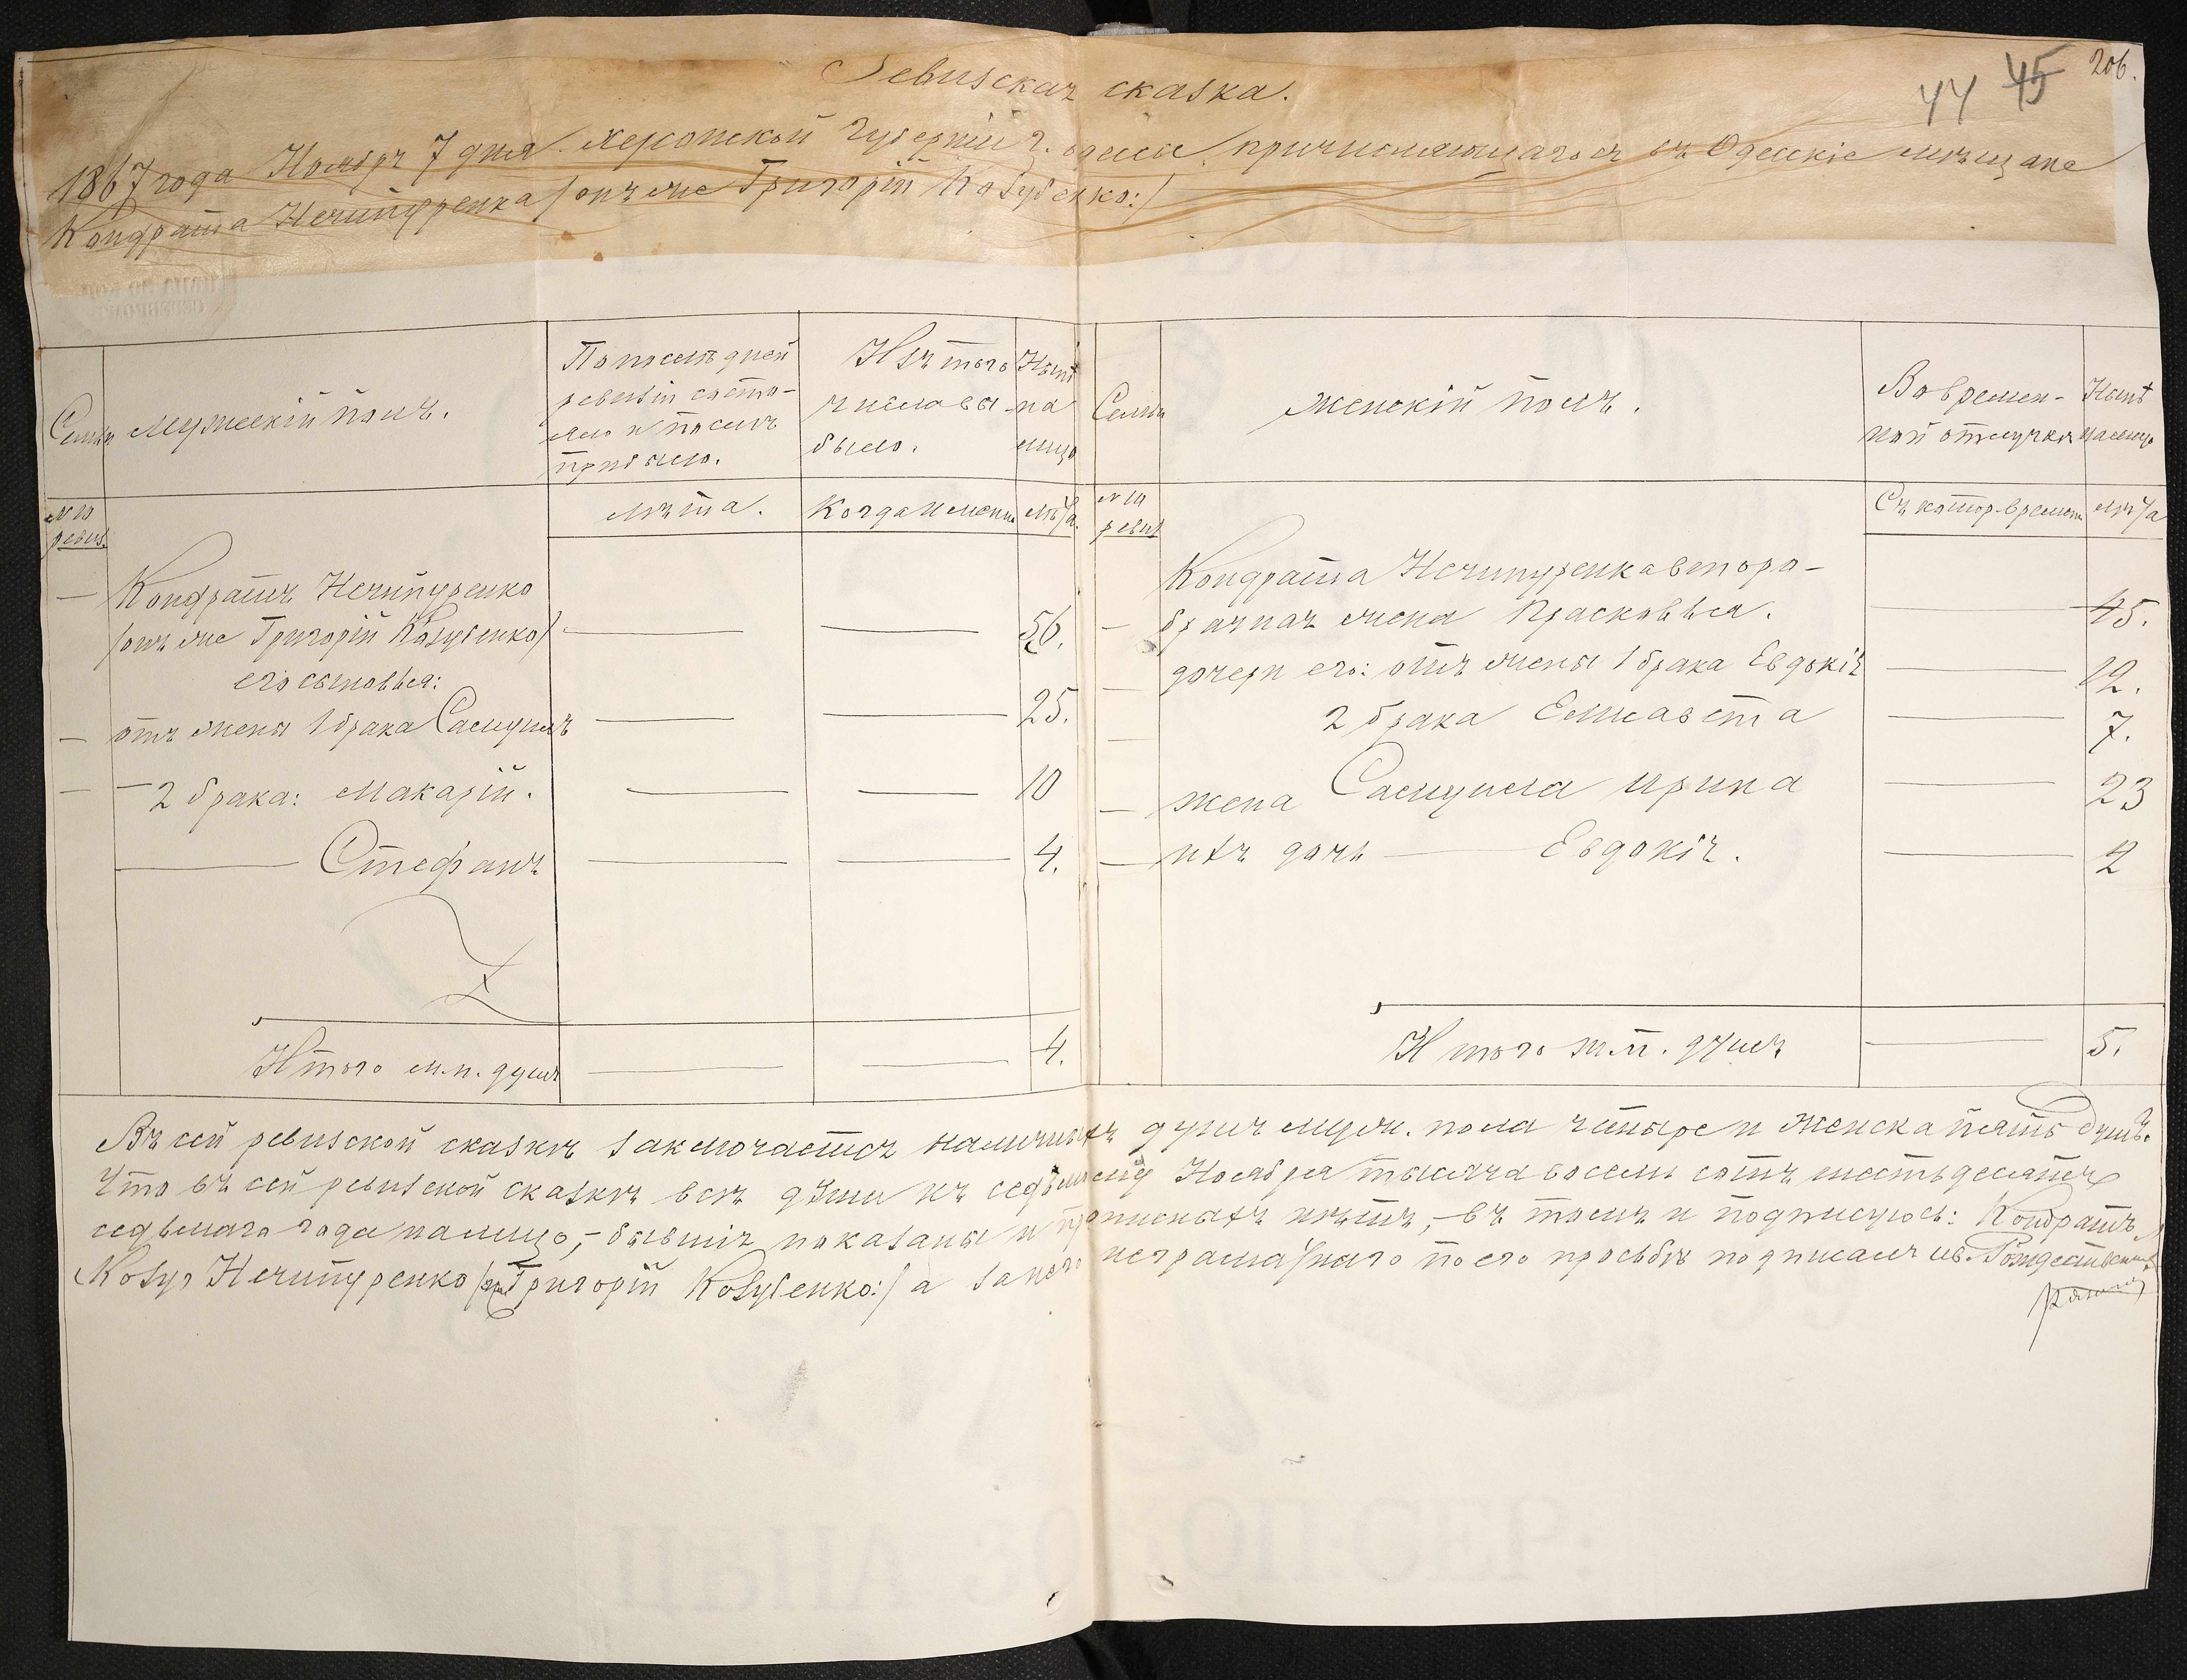 206.
44 45
Ревизская сказка.
1867 года Ноября 7 дня Херсонской Губерніи г. Одессы причисляющагося въ Одесскіе мѣщане
Кондрата Нечипуренка /онъ же Григорій Козубенко:/
Семьи
Мужескій полъ.
По послѣдней
ревизіи состо-
яло и послѣ
прибыло.
Изъ того
числа вы-
было.
Нынѣ
на
лицо
№ 10
ревиз.
лѣта.
Когда именно
лѣта.
Кондратъ Нечипуренко
/онъ же Григорій Козубенко/
56.
его сыновья:
отъ жены 1 брака Самуилъ
25.
2 брака: Макарій.
10
Стефанъ
4.
Итого м.п. душъ
4.
Семьи
Женскій полъ.
Во времен-
ной отлучкѣ
Нынѣ
налицо
№ 10
ревиз
Съ котор. времени
лѣта
Кондрата Нечипуренка второ-
брачная жена Прасковья.
45.
дочери его: отъ жены 1 брака Евдокія
12.
2 брака Елисавета
7.
жена Самуила Ирина
23
ихъ дочь Евдокія.
2
Итого ж.п. душъ
5.
Въ сей ревизской сказкѣ заключается наличныхъ душъ муж. пола четыре и женска пять душъ.
Что въ сей ревизской сказкѣ всѣ души къ седьмому Ноября тысяча восемь сотъ шестьдесятъ
седьмаго года налицо, – бывшія показаны и прописныхъ нѣтъ, – въ томъ и подписуюсь: Кондратъ
Козуб Нечипуренко /онъ Григорій Козубенко:/ а за него неграматнаго по его прозьбѣ подписалъ ив. Рождественскій